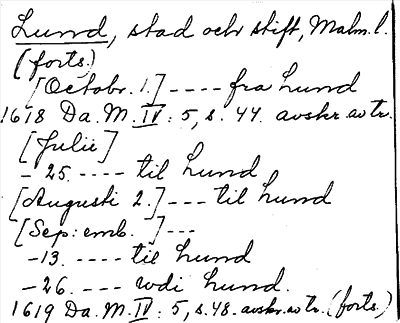 Lund, stad och stift, Malm. l.
(forts.)
[Octobr. 1.] ---- fra Lund
1618 Da. M. IV: 5, s. 44. avskr. av tr.
[Julii]
- 25. ---- til Lund
[Augusti 2.] --- til Lund
[Sep: emb. ] ---
- 13. ---- til Lund
- 26. ---- udi Lund.
1619 Da. M. IV: 5, s. 48. avskr. av tr. (forts.)